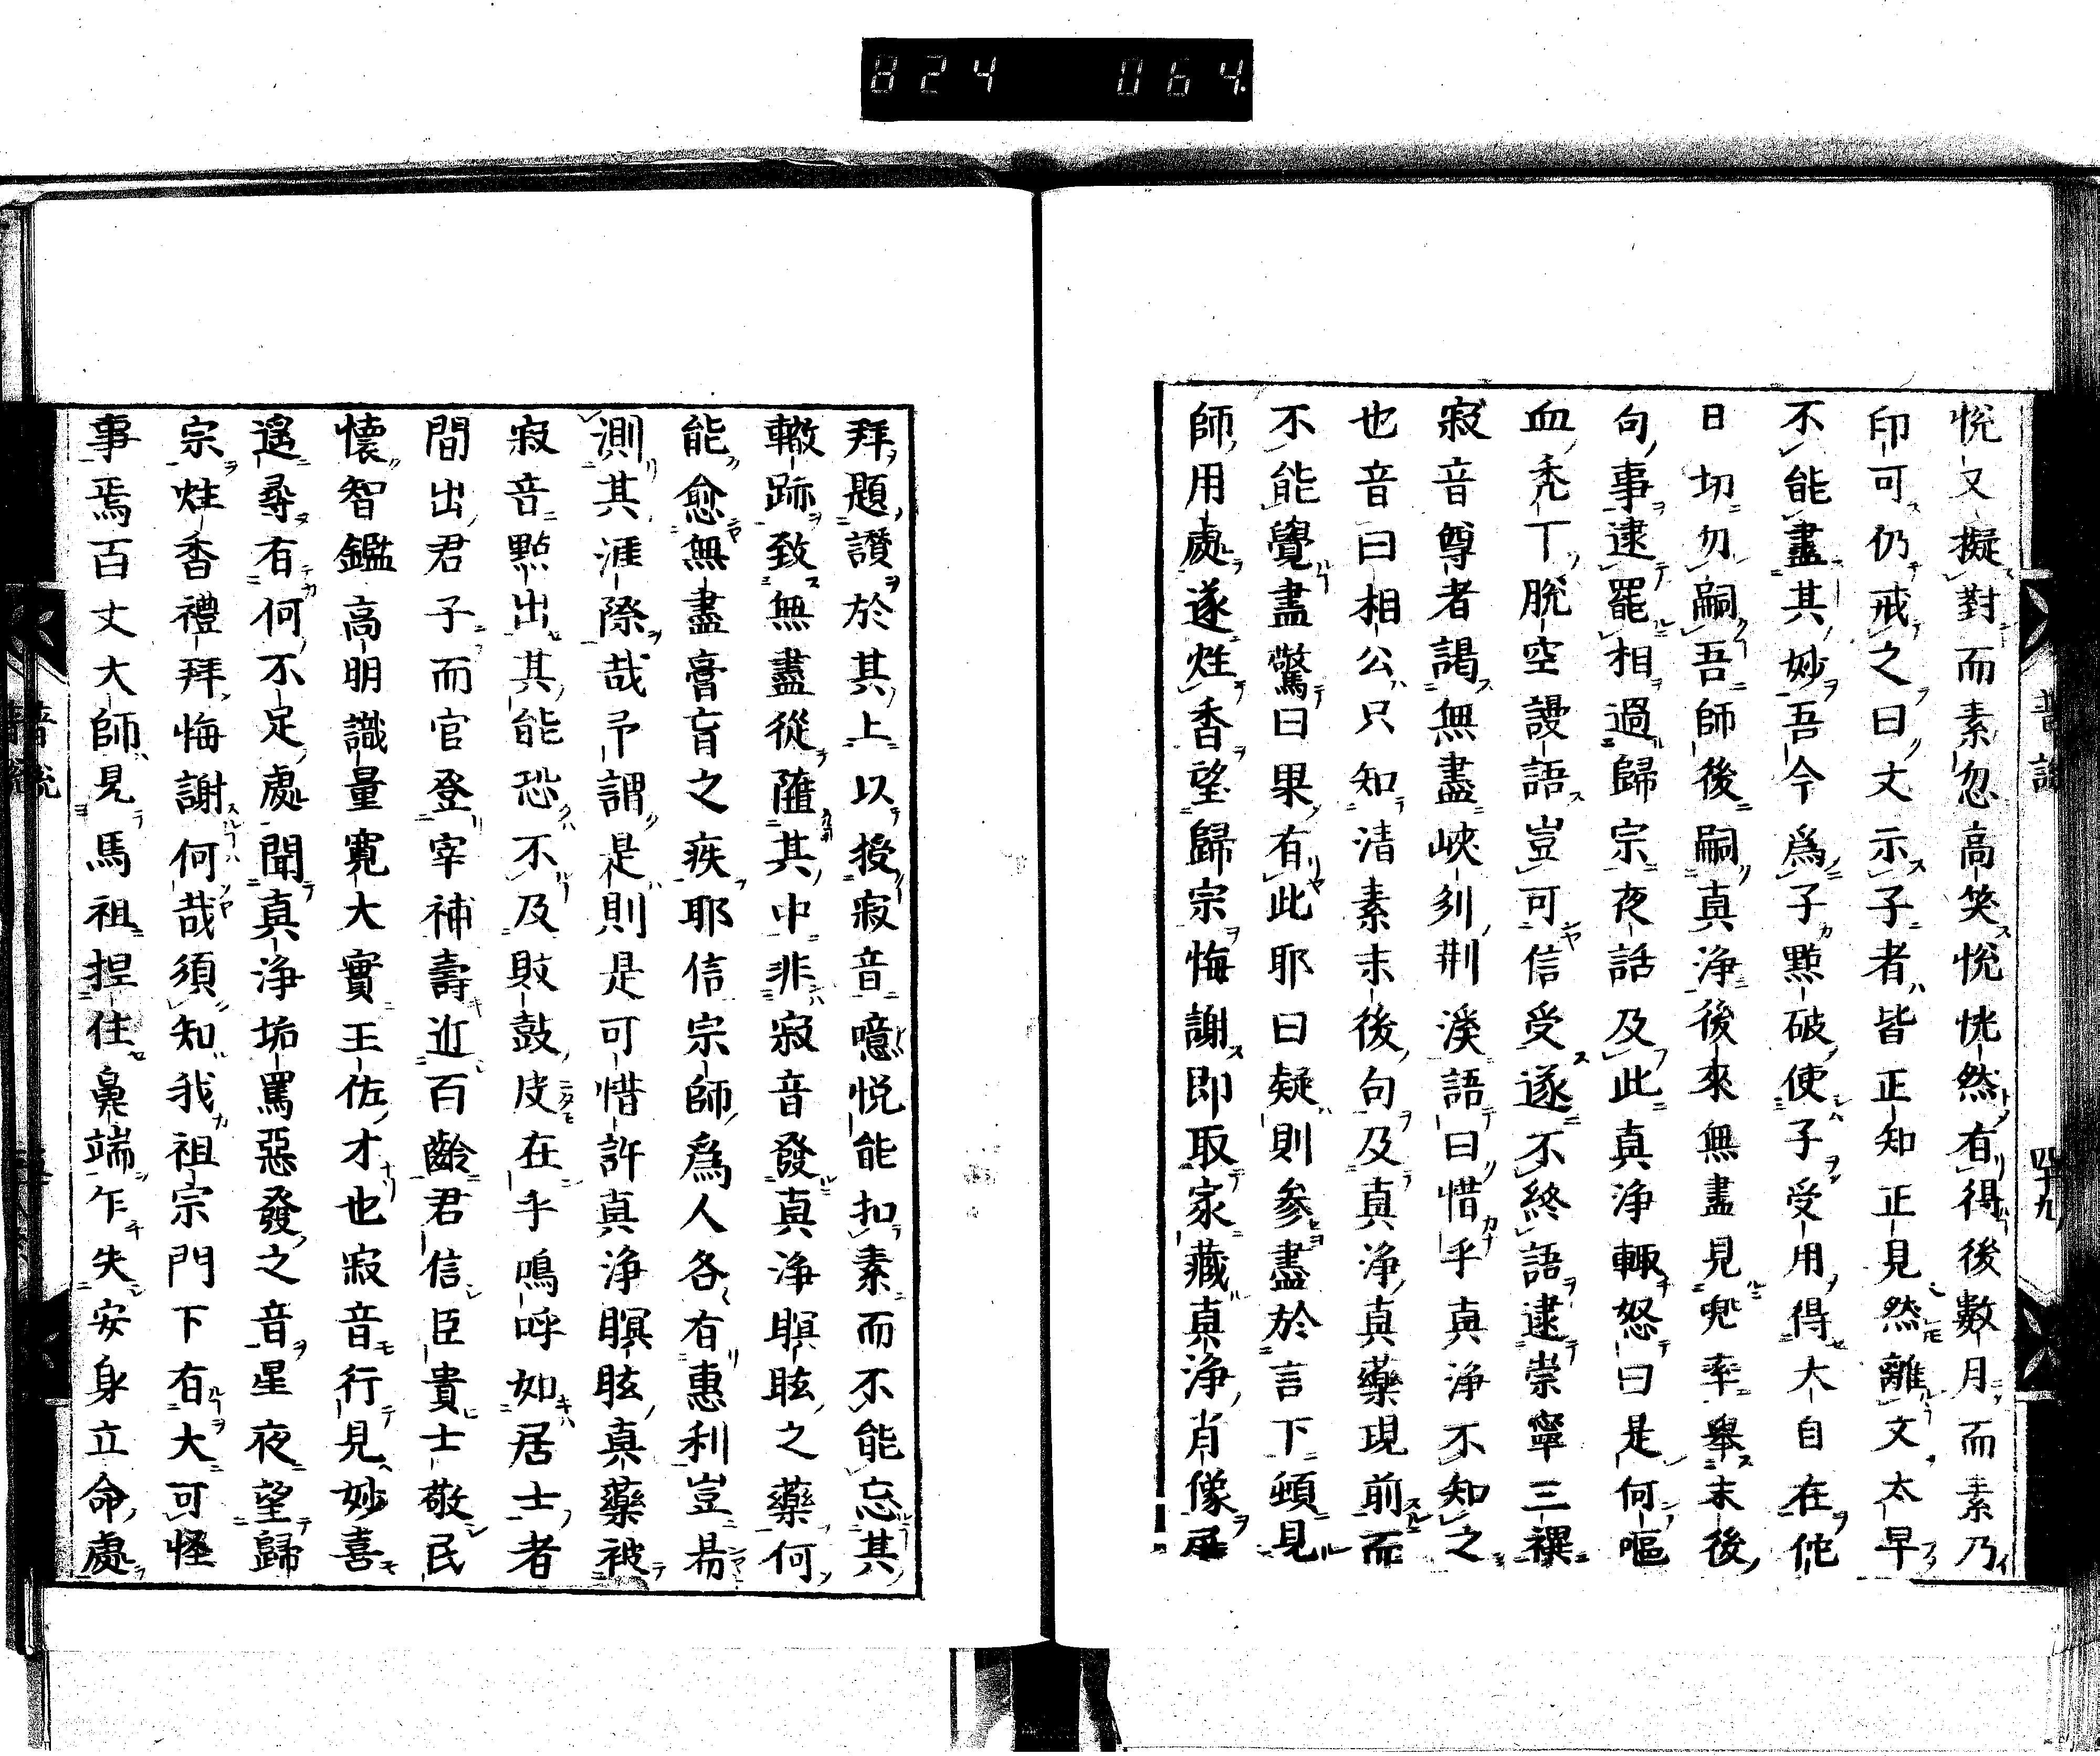 824 064.
普説
四十九
悦又擬對而素忽高笑悦恍然有得後數月而素乃
印可仍戒之曰文示子者皆正知正見然離文太早
不能盡其妙吾今爲子點破使子受用得大自在佗
日切勿嗣吾師後嗣真浄後來無盡見兜率擧末後
句事逮罷相過歸宗夜話及此真浄輙怒曰是何嘔
血禿丁脱空謾語豈可信受遂不終語逮崇寧三禩
寂音尊者謁無盡峽列荆溪語曰惜乎真浄不知之
也音曰相公只知清素末後句及真浄真藥現前而
不能覺盡驚曰果有此耶曰疑則参盡於言下頓見
師用處遂炷香望歸宗悔謝即取家藏真浄肖像展
拜題讃於其上以授寂音噫悦能扣素而不能忘其
轍跡致無盡從陥其中非寂音發真浄瞑眩之藥何
能愈無盡膏盲之疾耶信宗師爲人各有惠利豈易
測其涯際哉予謂是則是可惜許真浄瞑眩真藥被
寂音點出其能恐不及敗鼓皮在乎嗚呼如居士者
間出君子而官登宰補壽近百齡君信臣貴士敬民
懷智鑑高明識量寬大實王佐才也寂音行見妙喜
遥尋有何不足處聞真浄垢罵惡發之音星夜望歸
宗炷香禮拜悔謝何哉須知我祖宗門下有大可怪
事焉百丈大師見馬祖揑住鼻端乍失安身立命處
普説